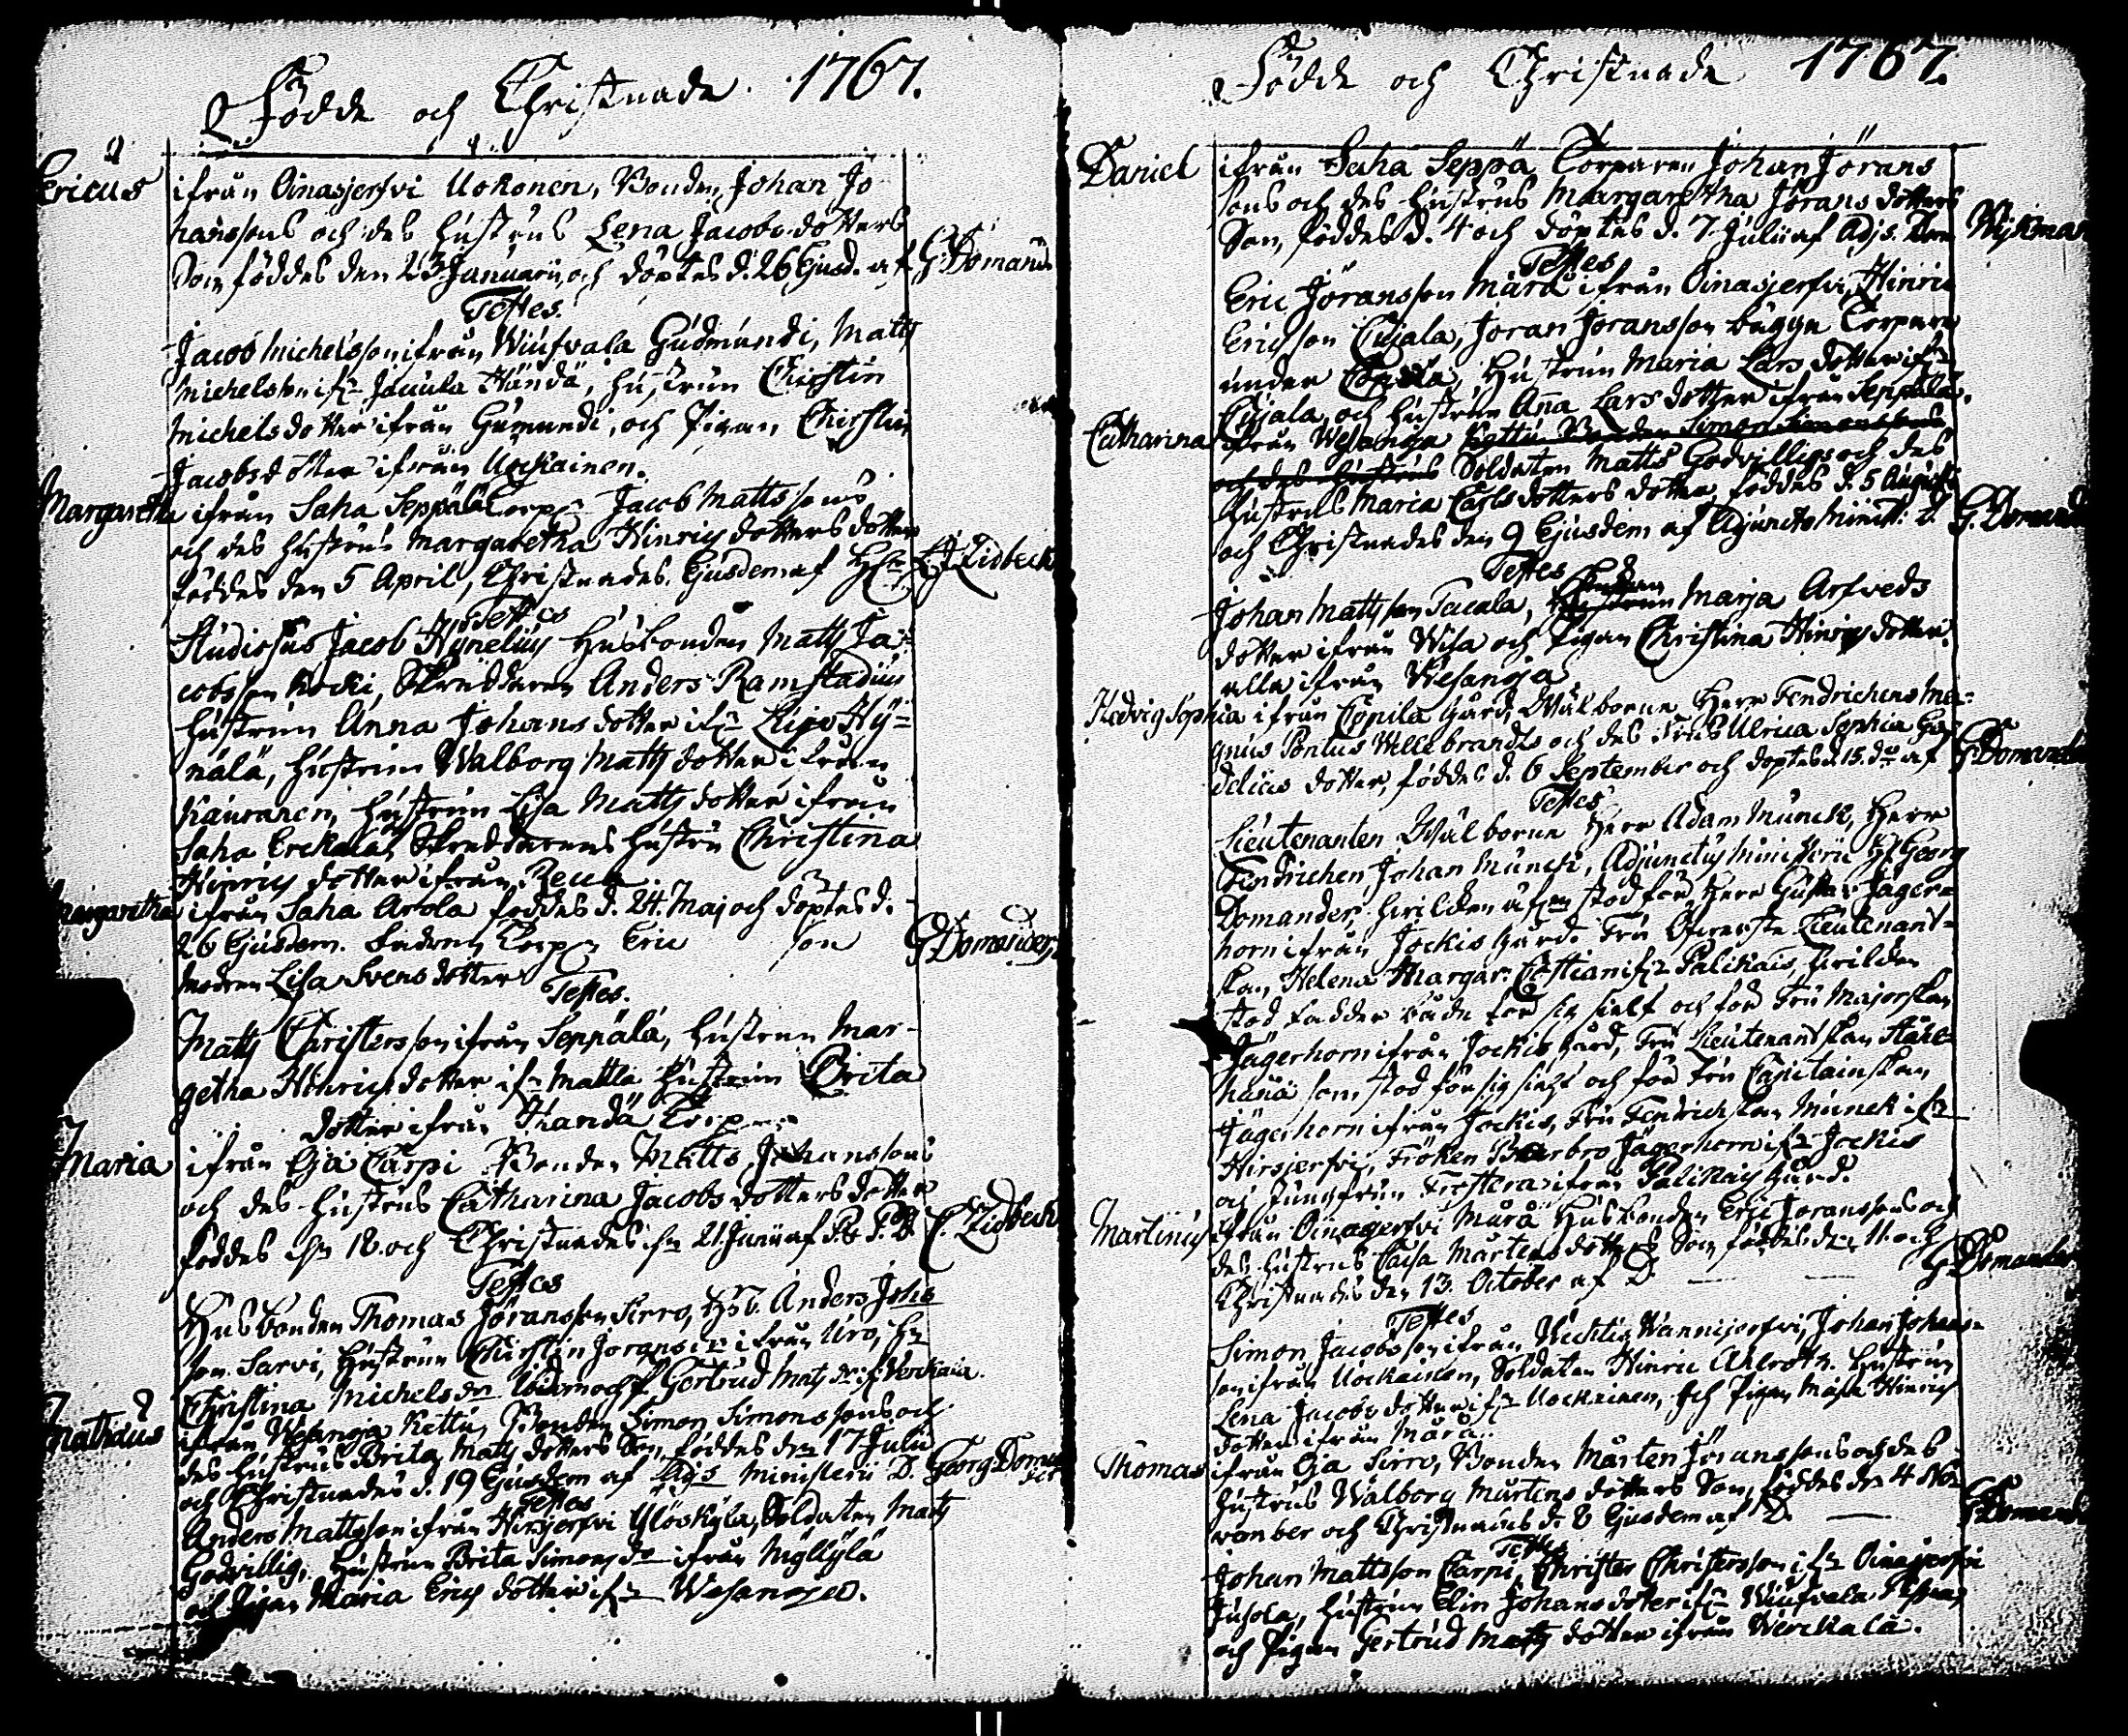 Födde och Christnade. 1767.
Ericus ifrån Oinasjerfvi Uokonen, Bonden Johan Jo
hanssons och des hustrus Lena Jacobsdotters
Son föddes den 23 Januarii och döptes d. 26 Ejusd. af G. Domand.
Testes.
Jacob Michelsson ifrån Wiufvala Gudmundi, Matts
Michelsson ifr. Händä, hustrun Chirstin
Michelsdotter ifrån Gumundi, och Pigan, Chirstin
Jacobsdotter ifrån Uockainen.
Margaretha ifrån Saha Seppälä Torp. Jacob Mattssons
och des hustrus Margaretha Hinrichsdotters dotter
föddes den 5 April, Christnades Ejusdem af Lidbeck
Testes
Studiosus Jacob Hynelius Husbonden Matts Ja-
cobsson Kocki, Skreddaren Anders Ramstadius
hustrun Anna Johansdotter ifr. Hy-
nälä, hustrun Walborg Mattsdotter ifrån
Kauranen, hustrun Lisa Mattsdotter ifrån
Saha Erckälä, Skreddarens hustru Christina
Hinrichsdotter ifrån
Margaretha ifrån Saha Arola föddes d. 24. Maj och döptes d.
26 Ejusdem. fadren Torp. Eric son G. Domander.
modren Lisa Svensdotter
Testes.
Matts Christersson ifrån Seppälä, hustrun Mar-
getha Hinrichsdotter ifr. Mattla hustrun Brita
dotter ifrån Handä Torp
Maria ifrån Oja Carpi Bonden Matts Johanssons
och des hustrus Catharina Jacobsdotters dotter
föddes den 18. och Christnades den 21. Junii af C. Lidbeck
Testes
Husbonden Thomas Jöransson Sirro, Anders Joha
son Sarvi, hustrun Chirstin ifrån Uro,
Christina Michels och Gertrud Mats
Mathæus ifrån Wesanoja Kettu, Bonden Simon Simonssons och
des hustrus Brita Matts dotters Son, föddes den 17 Julii
och Christnades d. 19 Ejusdem af Adj. Ministerii D. Georg Doman
der
Testes
Anders Mattsson ifrån Hirsjerfvi Yliskylä, Soldaten Matts
Godvillig, hustrun Brita Simons dr. ifrån Myllylä
och Pigan Maria Erichsdotter ifr. Wesanoja.
Födde och Christnade 1767.
Daniel ifrån Saha Seppä Torparen Johan Jörans
sons och des hustrus Margaretha Jöransdotters
Son, föddes d. 4 och döptes d. 7 Julii af Adj. Wijkman
Testes
Eric Jöransson Märä ifrån Oinasjerfvi, Hinric
Ericsson Cujala, Joran Joransson bägge Torpare
under hustrun Maria Larsdotter ifr.
Cujala, och hustrun Anna Larsdotter ifrån Seppälä.
Catharina ifrån Wesanoja Kettu Bonden Simon Simonssons
och des hustrus Soldaten Matts Godvilligs och des
hustrus Maria Carlsdotters dotter, föddes d. 5 Augusti
och Christnades den 9 Ejusdem af Adjuncto Minist: D. G. Domand
Testes
Johan Mattsson hustrun Marja Arfveds
dotter ifrån Wisa och Pigan Christina Hinrichsdotter
alla ifrån Wesanoja
Hedvig Sophia ifrån Copila Gård, Wälborne Herr Fendrichens Ma-
gnus Pontus Wellebrandts och des Frus Ulrica Sophia
dotter, föddes d. 6 September och döptes d. 15. do af G. Domander
Testes
Lieutenanten Wälborne Herr Adam Munck, Herr
Fendrichen Johan Munck, Adjunctus Ministerii Hr Georg
Domander, hvilcken äfven stod för Herr Gustav Jäger-
horn ifrån Jockis Gård. Fru Öfverste Lieutenant-
skan, Helena Margar. ifr. Palikais, hvilcken
stod fadder både för sig sielf och för Fru Majorskan
Jägerhorn ifrån Jockis Gård, Fru Lieutenantskan
som stod för sig sielf och för Fru Capitainskan
Jägerhorn ifrån Jockis, Fru Fendrichskan Munck ifr.
Hirsjerfvi, Fröken Barbro Jägerhorn ifr. Jockis
och Jungfrun ifrån Palikais Gård.
Martinus ifrån Oinasjerfvi Märä Husbonden Eric Joranssons och
des hustrus Caisa Mårtensdotters Son, föddes den 11. och
Christnades den 13. October af D. G. Domander
Testes
Simon Jacobsson ifrån Wichtis Wannijerfvi, Johan Johans-
son ifrån Uockainen, Soldaten Hinric Ahlroth. hustrun
Lena Jacobsdotter ifr. Uockainen, och Pigan Maja Hinrichs
dotter ifrån Märä.
Thomas ifrån Oja Sirro, Bonden Mårten Jöranssons och des
hustrus Walborg Mårtens dotters Son, föddes den 4 No-
vember och Christnades d. 8 Ejusdem af D. G. Domand
Testes
Johan Mattsson Carpi, Christer Christersson ifr. Oinasjerfvi
Jusola, hustrun Elin Johansdotter ifr. Wiufvala
och Pigan Gertrud Matts dotter ifrån Werckalä.